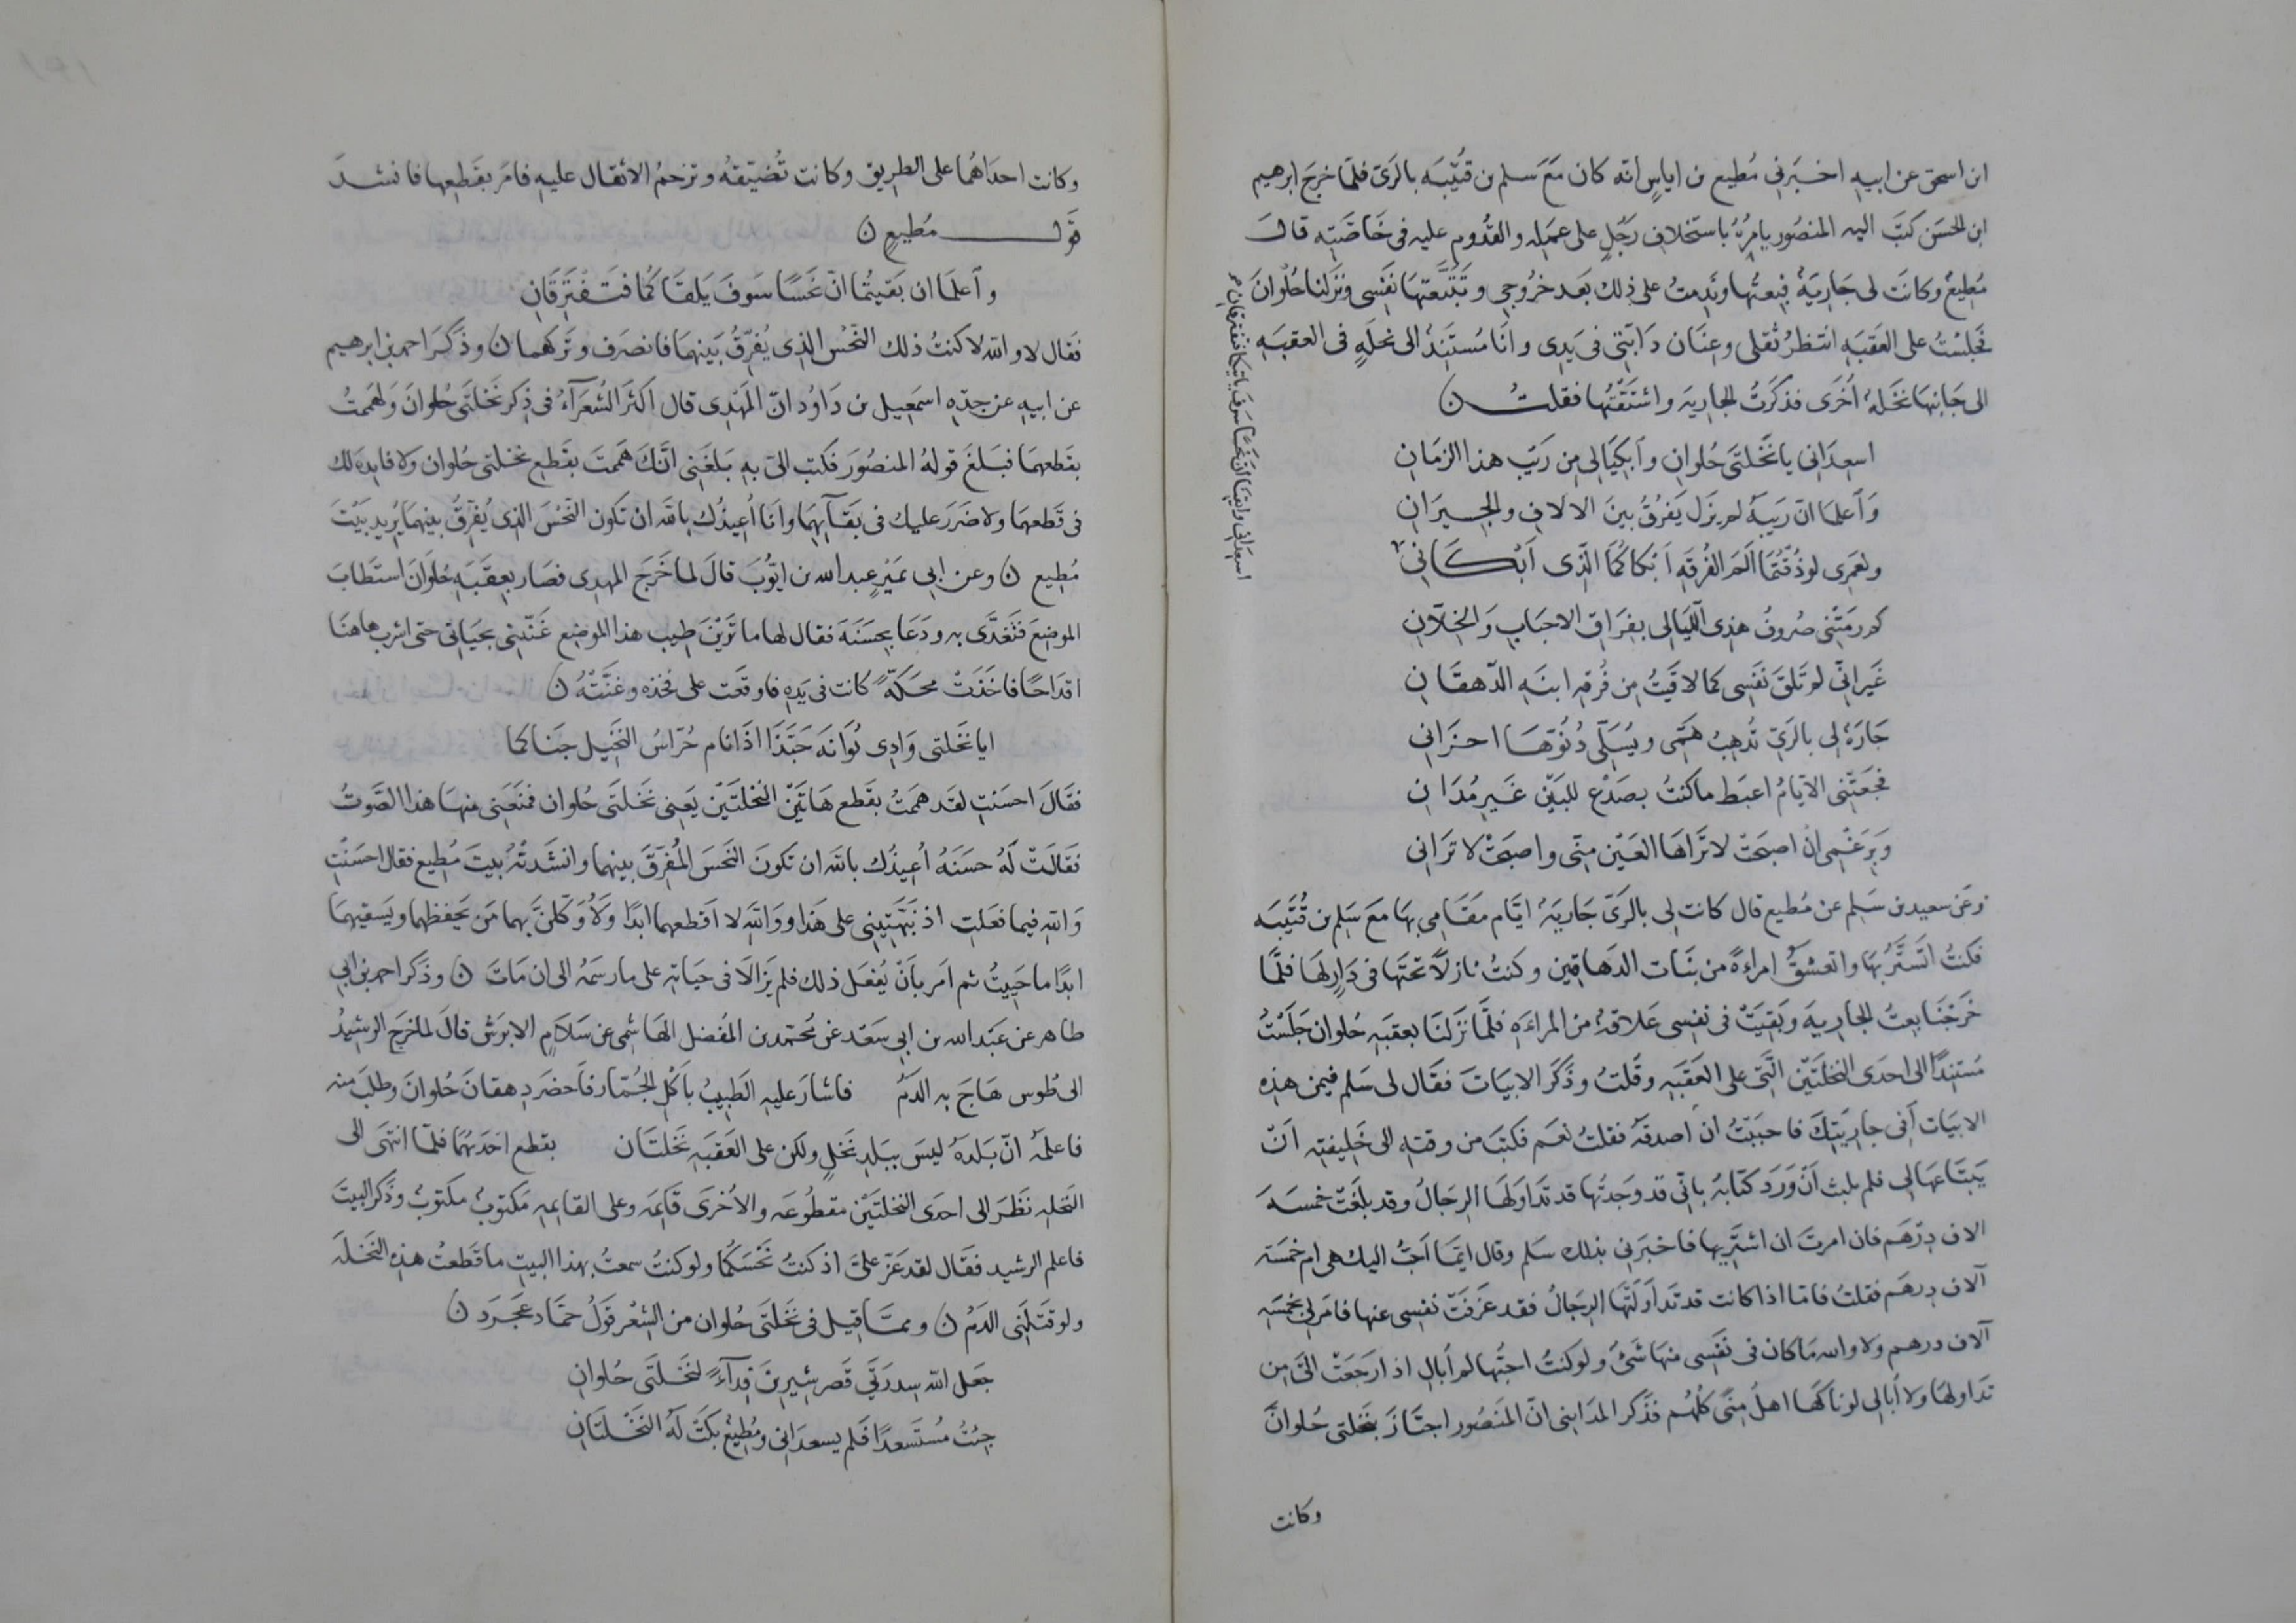 ابن اسحق عن ابيهِ اخبَرَنِي مُطيع بن اياسٍ انّه كان مَعَ سلم بن قُتَيْبَه بالرَىّ فلمّا خرجَ ابرهيم
ابن الحسَن كتَبَ اليه المنصُور يامرُهُ باستخلافِ رَجُلٍ على عمَلِه والقُدُوم عليه فى خَاصَّتِهِ قالَ
مُطِيعُ وكانَت لى جَارِيَةٌ فبِعتُها ونَدِمتُ على ذلك بَعد خرُوجي وتَتَبَّعَتهَا نَفسى ونَزلنا حُلْوانَ
فجلسْتُ على العَقَبَهِ انتظرُ ثقلى وعِنَان دَابّتِي فى يَدِى وانَا مُستَنِدٌ الى نخلَةٍ فى العقبَهِ
الى جَانِبهَا نخَلةٌ اُخَرى فذكَرَتُ الجاريَه واشتَقتُها فقلتُ ن
اسعِدَانِى يا نَخلتَى حُلوانِ وٱبكِيَا لِى مِن رَيْب هذا الزمَانِ
وَٱعلَمَا انّ رَيبَهُ لم يزَل يَفرُقُ بينَ الالافِ والجِـيرَانِ
ولعَمرِى لو ذُقتُمَا اَلَم الفُرقَهِ اَبْكاكُمَا الَّذِى اَبْكَانِىْ
كم رمَتْنِى صُروفُ هذِى اللّيَالِى بفِرَاقِ الاحبَابِ وَالخِلّانِ
غَيرَ انِّى لم تَلقَ نَفسِى كما لاقَيتُ مِن فُرقَهِ ابنَهِ الدّهقَانِ
جَارَةٌ لِى بالرَىّ تُذهِبُ هَمّى ويُسَلّى دُنُوّهَا احزَانِى
فجَعَتْنِى الايّامُ اغبَط ما كنتُ بصَدْعٍ للبَيْن غَيرِ مُدَانِ
وَبِرَغمِى انْ اصبَحَتْ لا تَراهَا العَيْن مِنّى واصبَحَتْ لا تَرَانِى
وعَن سعيد بن سَلِم عن مُطيع قال كانت لِى بالرَىّ جَاريَةٌ ايّام مَقَامِى بهَا مَعَ سَلِم بن قُتَيبَه
فكنتُ اتَستَّرُ بهَا واتعشقُ امراءةً من بنَات الدهَاقين وكنتُ نازلًا تحتَها فى دَارٍ لهَا فلمّا
خَرجْنَا بعتُ الجاريه وبَقِيَتْ فى نفسِى عَلاقةٌ من المراءَه فلمّا نزَلنَا بعقبَهِ حُلوان جَلَسْتُ
مُستَنِدًا الى احدَى النخلتَين الّتى على العَقَبَهِ وقُلتُ وذَكَر الابيَاتَ فقال لى سَلم فيمن هذِه
الابيَات اَفِى جارِيَتِكَ فاحبَبتُ ان اَصدقَهُ فقلتُ نعَم فكتبَ من وقتهِ الى خَلِيفتِهِ اَنْ
يَبتَاعهَا لِى فلم يلبث اَنْ وَرَد كتابهُ بانّى قد وجَدتُهَا قد تَداوَلهَا الرِجَالُ وقد بلغَتْ خمسَهَ
الاف دِرْهَم فان امرتَ ان اشترِيها فاخبَرَنِى بذلك سَلم وقال ايّمَا اَحَبُّ اليك هى ام خمسَة
آلاف درهَم فقلتُ فامّا اذا كانت قد تَداوَلَتهَا الرِجَالُ فقد عَزَفَتْ نفسى عنها فامَر لِى بخمسَهِ
آلاف درهم ولا والله مَا كان فى نَفسِى منهَا شئٌ ولو كنتُ احبّها لم اُبَالِ اذ ارَجَعَتْ الىّ مِن
تدَاولهَا ولا اُبَالِى لو ناكَهَا اهلُ مِنًى كُلُّهُم فذَكر المدَاينى انّ المَنصُور اجتَازَ بنخلتى حُلوانَ
وكانت
اسعِدَانِى وايقِنَا انّ نحسًا سَوفَ ياتيكما فتفترقان
وكانت احدَاهُما على الطريق وكانت تُضيّقهُ وتزحمُ الاثقال عليهِ فامَر بقَطِعها فانشدَ
قولـ مُطيعٍ ن
وٱعلمَا ان بَقيتُما انّ نحَسًا سَوفَ يَلقَاكُما فتَفْتَرِقَانِ
فقال لا والله لا كنتُ ذلك النّحْسُ الذِى يُفرّقُ بَينهمَا فانصَرَف وتَركهما ن وذَكَرَ احمد بن ابرهيم
عن ابيهِ عن جدّهِ اسمَعِيل بن دَاوُد انّ المَهْدى قال اكثَر الشُعَرَآءُ فى ذِكر نَخلتَى حُلوانَ ولهَممتُ
بقَطعهمَا فبَلغَ قولهُ المنصُورَ فكتب الىّ بهِ بَلغَنِى انّكَ هَممتَ بقَطعِ نخلتى حُلوان ولا فايدهَ لك
فى قَطعهمَا ولا ضَرَر عليك فى بَقآيِهمَا وانَا اُعِيذُك بالله ان تكون النّحْسَ الذِى يُفرّقُ بينهمَا يُرِيد بَيْتَ
مُطِيعٍ ن وعن ابى نمَيْرٍ عبد الله بن ايّوُبَ قالَ لما خَرَجَ المهدِى فصَار بعقَبَهِ حُلوَانَ استَطابَ
الموضعَ فتَغدَّى به ودَعَا بحسَنَهَ فقال لها ما تَرَيْنَ طِيبَ هذا الموضع غَنّينِى بحيَاتى حتى اشرب هاهنَا
اقدَاحًا فاخَذَتْ محَكّةً كانت فى يَدِهِ فاوقعَت على فخذه وغَنّتْهُ ن
ايا نخَلتى وَادِى بُوَانهَ حَبّذَا اذَا نام حُرّاسُ النّخِيل جَنَاكما
فقَالَ احسَنتِ لقَد همَمتُ بقَطعِ هَاتَيْنِ النخلتَيْن يَعنِى نَخلتَى حُلوان فمنَعَنِى منهَا هذا الصَّوتُ
فقَالَتْ لَهُ حسَنَهُ اُعِيذُك بالله ان تكونَ النّحَسَ المُفرّقَ بينهما وانشَدتْهُ بيتَ مُطِيع فقال احسَنْتِ
وَالله فيما فعَلتِ اذ نَبّهَتِينِى على هَذا ووَالله لا اَقطعهما ابدًا ولَاُوكلنَّ بهما مَن يَحفظهما ويَسقيهمَا
ابدًا ما حَيِيتُ ثم امَر بانْ يُفعَل ذلك فلم يَزالَا فى حيَاته على ما رسَمهُ الى ان مَاتَ ن وذَكَر احمد بن ابى
طاهر عن عَبد الله بن ابى سَعَد عن مُحمّد بن المُفضل الهَاشِمى عن سَلَامٍ الابرَش قالَ لما خرجَ الرشيدُ
الى طُوس هَاجَ به الدَمُ فاشارَ عليهِ الطَبِيبُ باَكلِ الجُمّار فاحضَر دِهقانَ حُلوانَ وطلَبَ منه
فاعلمَهُ انّ بَلدَهُ ليسَ ببَلدِ نَخلٍ ولكن على العَقبَهِ نَخلتَان بقطع احدَيهُمَا فلمّا انتهَى الى
النّخلهِ نظَرَ الى احدَى النخلتَيْن مقطُوعَه والاُخرَى قايمَه وعلى القايمهِ مَكتوبٌ مكتوبٌ وذَكَر البيتَ
فاعلم الرشيد فقَال لقد عَزّ علىَّ اذ كنتُ نَحْسَكُما ولو كنتُ سمعتُ بهذا البيتِ ما قَطعتُ هذِه النّخلَه
ولو قتَلَنِى الدَمُ ن وممّا قيل فى نَخلتَى حُلوان من الشِعْر قَولُ حمّاد عَجرَد ن
جَعل الله سِدرَتَى قَصر شِيرِينَ فِدآءً لنَخلتَى حُلوانِ
جِئتُ مُستَسعدًا فلم يسعدَانِى ومُطِيعٌ بكَتْ لَهُ النّخلتَانِ